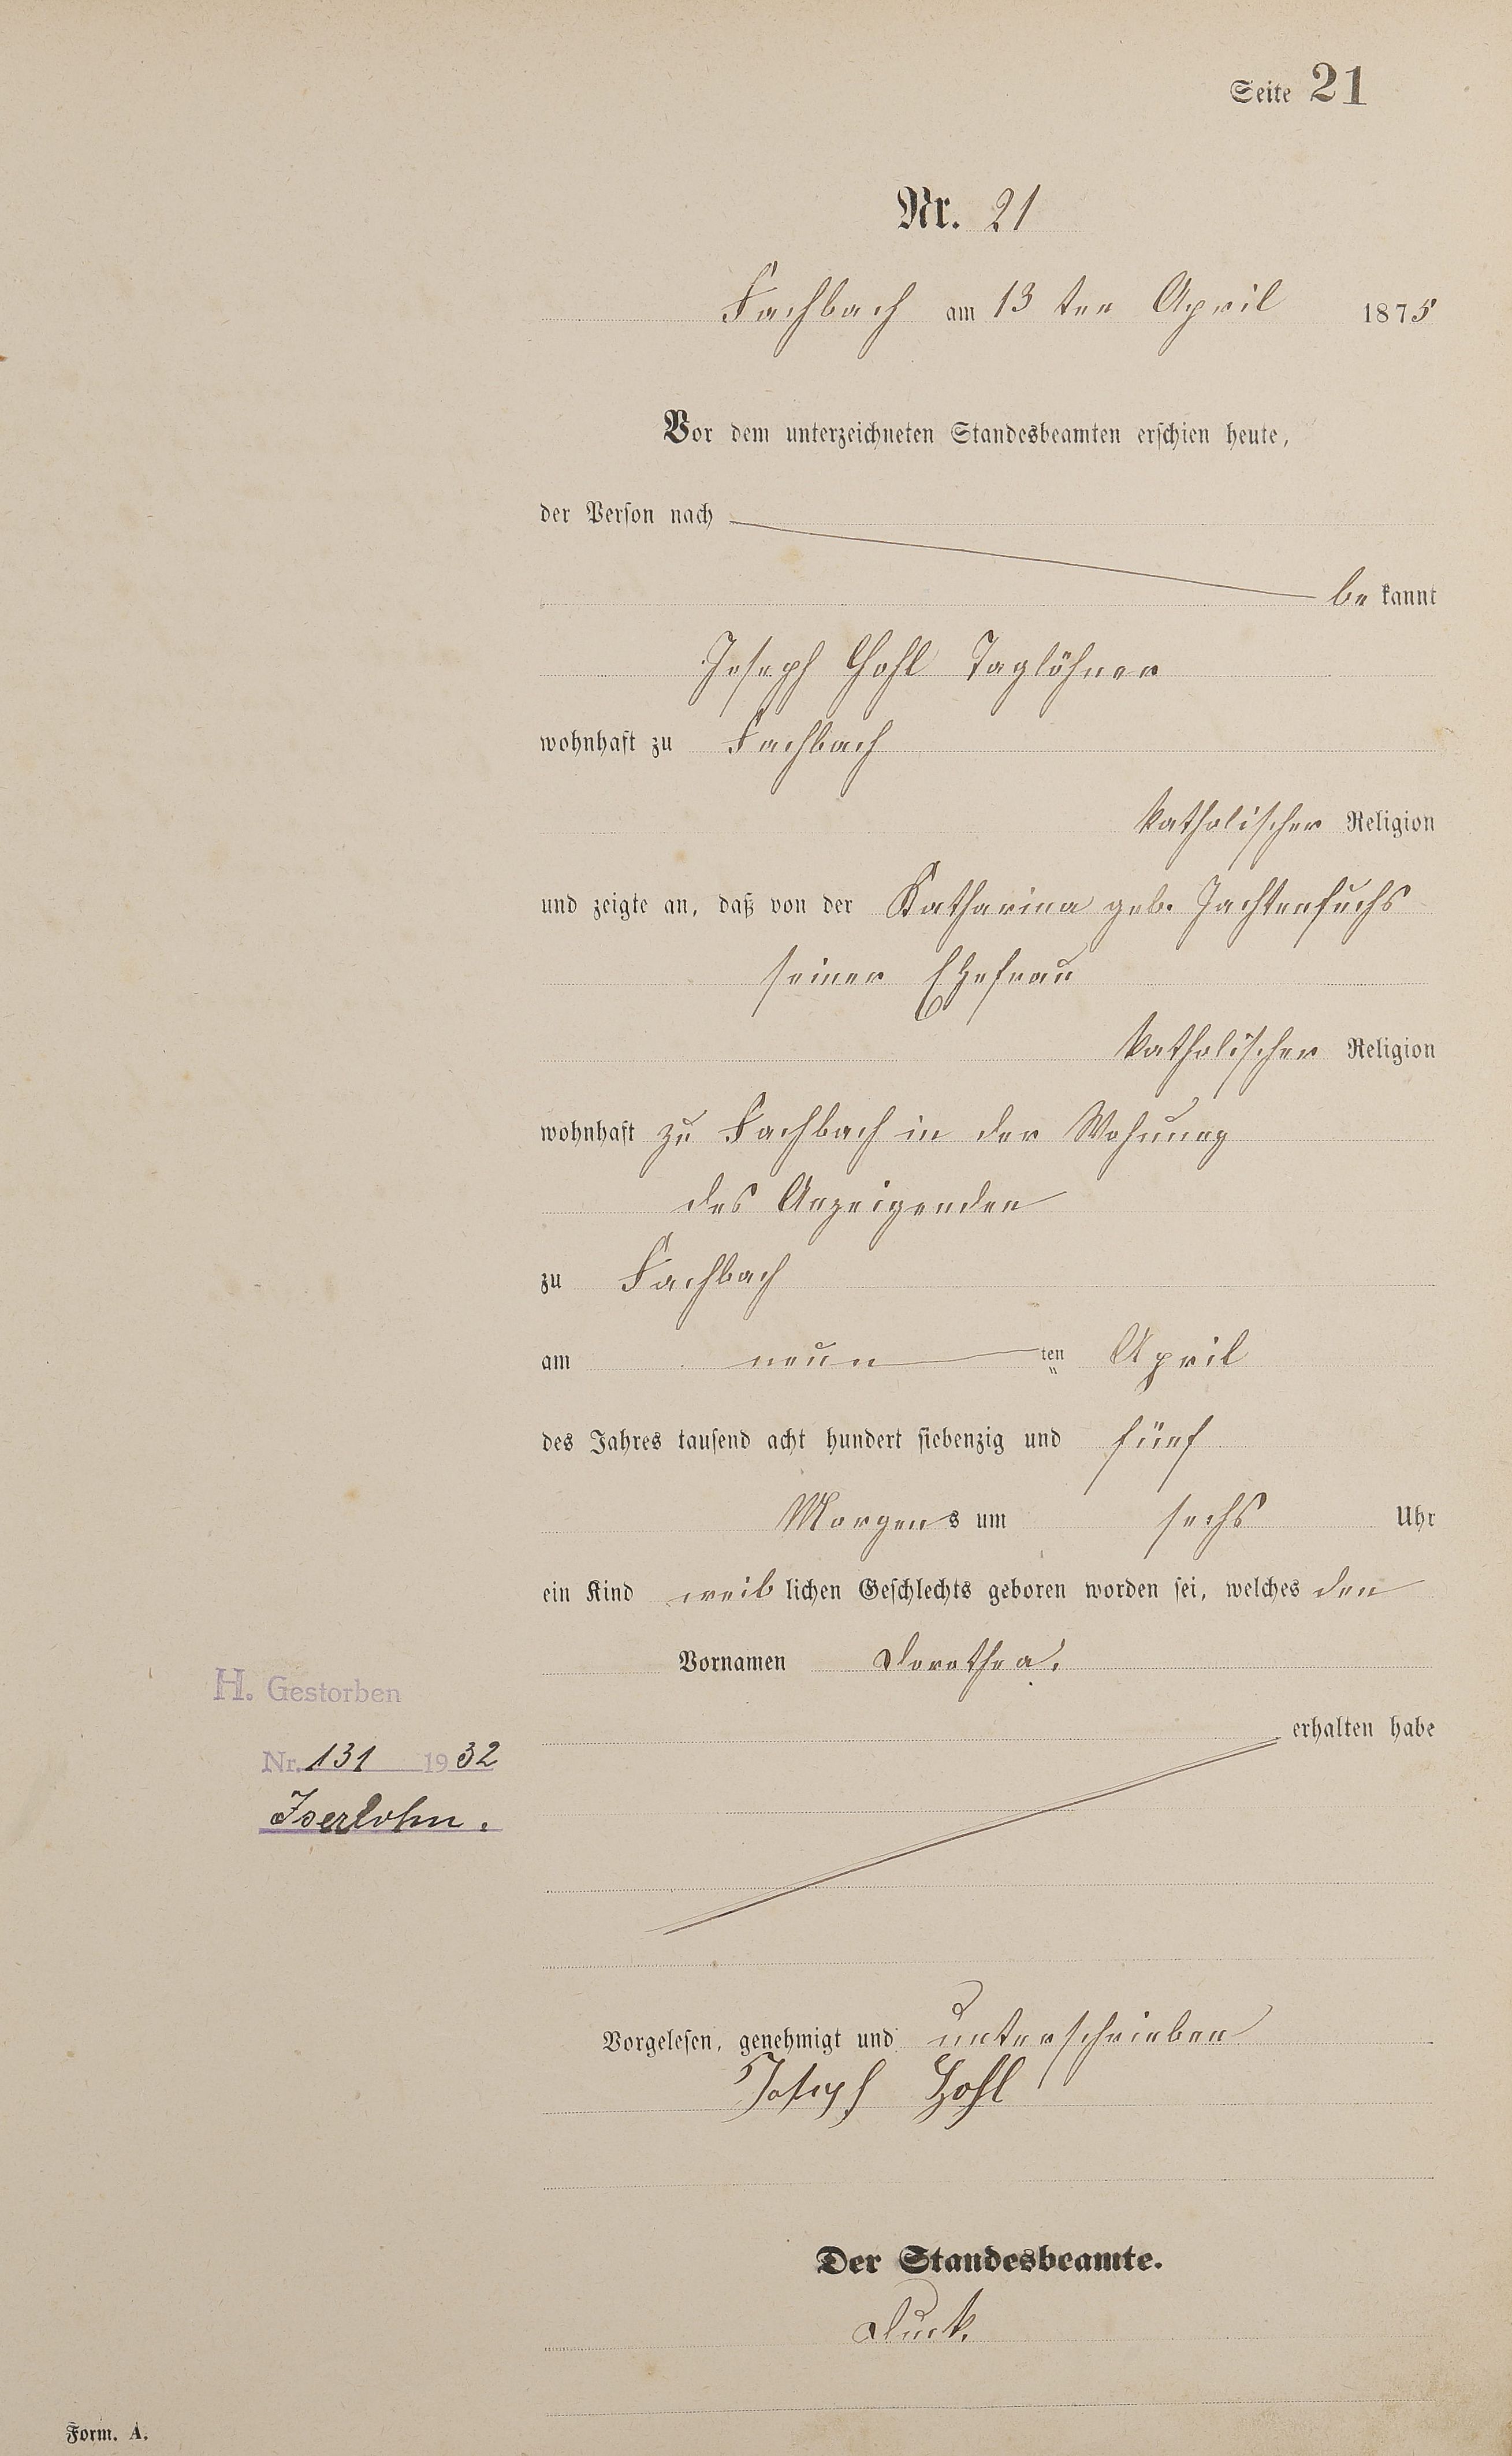 Seite 21
Nr. 21
Fachbach am 13 ten April 1875
Vor dem unterzeichneten Standesbeamten erschien heute,
der Person nach
be kannt
Joseph Hohl Taglöhner
wohnhaft zu Fachbach
katholischer Religion
und zeigte an, daß von der Katharina geb. Jachtenfuchs
seiner Ehefrau
katholischer Religion
wohnhaft zu Fachbach in der Wohnung
des Anzeigenden
zu Fachbach
am neun ten April
des Jahres tausend acht hundert siebenzig und fünf
Morgens um sechs Uhr
ein Kind weiblichen Geschlechts geboren worden sei, welches den
Vornamen Dorothea.
erhalten habe
H. Gestorben
Nr. 131 1932
Iserlohn.
Vorgelesen, genehmigt und unterschrieben
Joseph Hohl
Der Standesbeamte.
Duck.
Form. A.